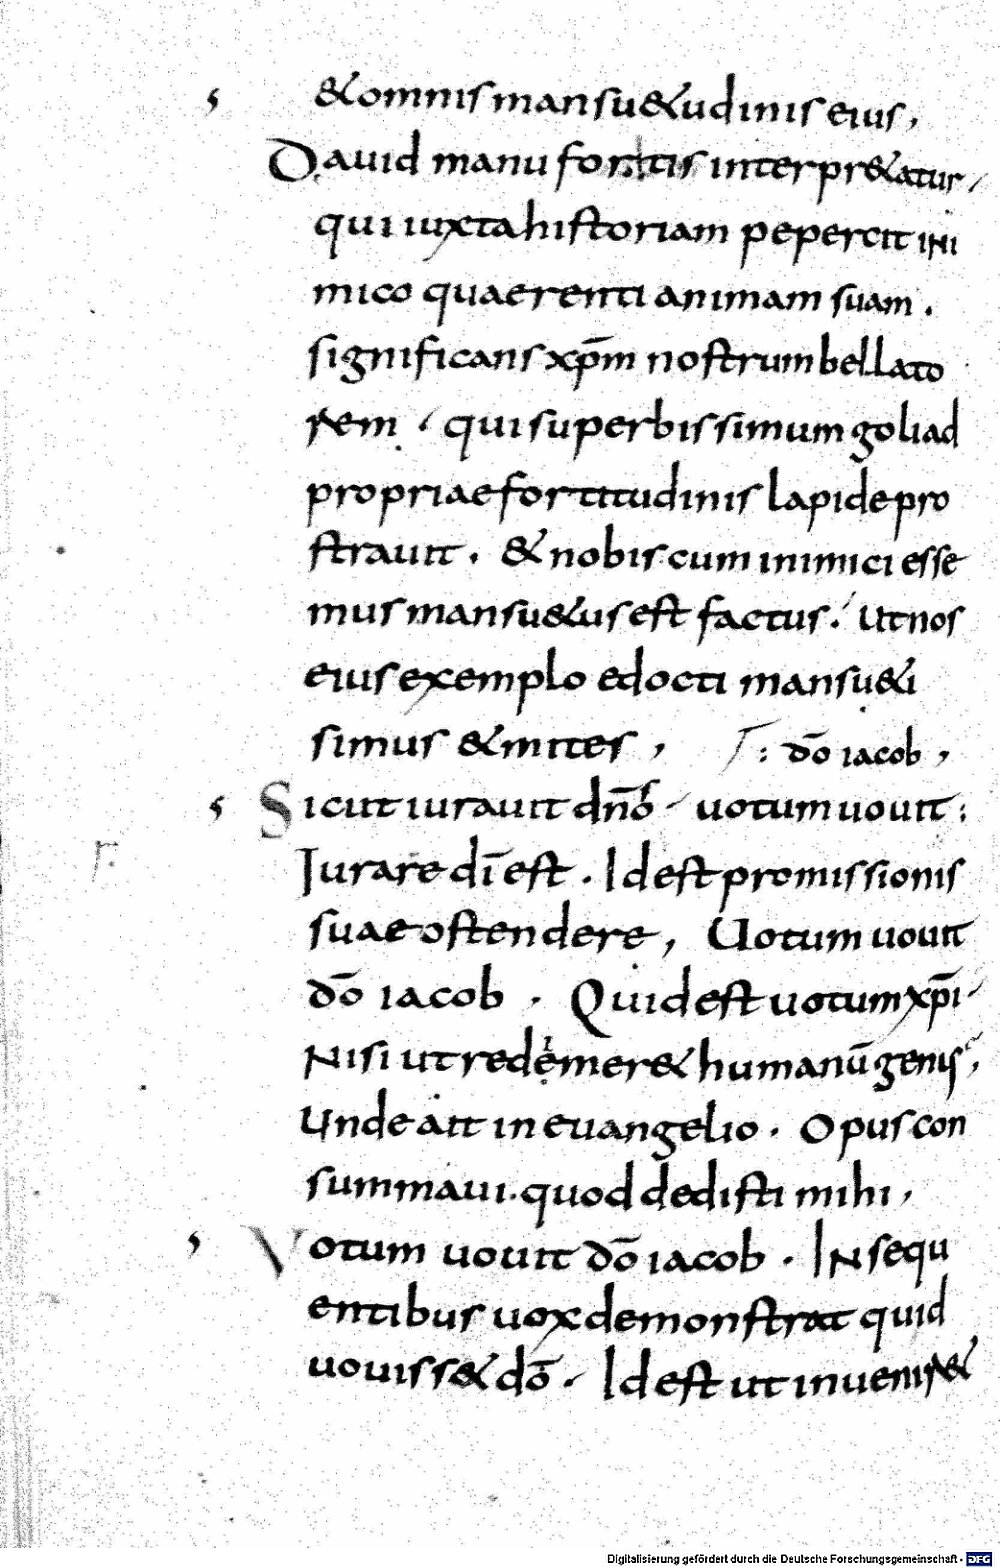 &omnis mansu&udinis eius,
David manu fortis interpr&atur
qui iuxta historiam pepercit ini
mico quaerenti animam suam.
significans xp̄m nostrum bellato
rem. qui superbissimum goliad
propriae fortitudinis lapide pro
strauit. & nobis cum inimici esse
mus mansu&us est factus. Ut nos
eius exemplo edocti mansu&i
simus & mites, : dō iacob,
Sicut iurauit dn̄o uotum uouit:
Iurare dī est. Id est promissionis
suae ostendere, Uotum uouit
dō iacob. Quid est uotum xp̄i
Nisi ut redimer& humanū genus,
Unde ait in euangelio. Opus con
summaui. quod dedisti mihi,
Votum uouit dō iacob. In sequ
entibus uox demonstrat quid
uouiss& dō. Id est ut inuenir&
Digitalisierung gefördert durch die Deutsche Forschungsgemeinschaft - DFG